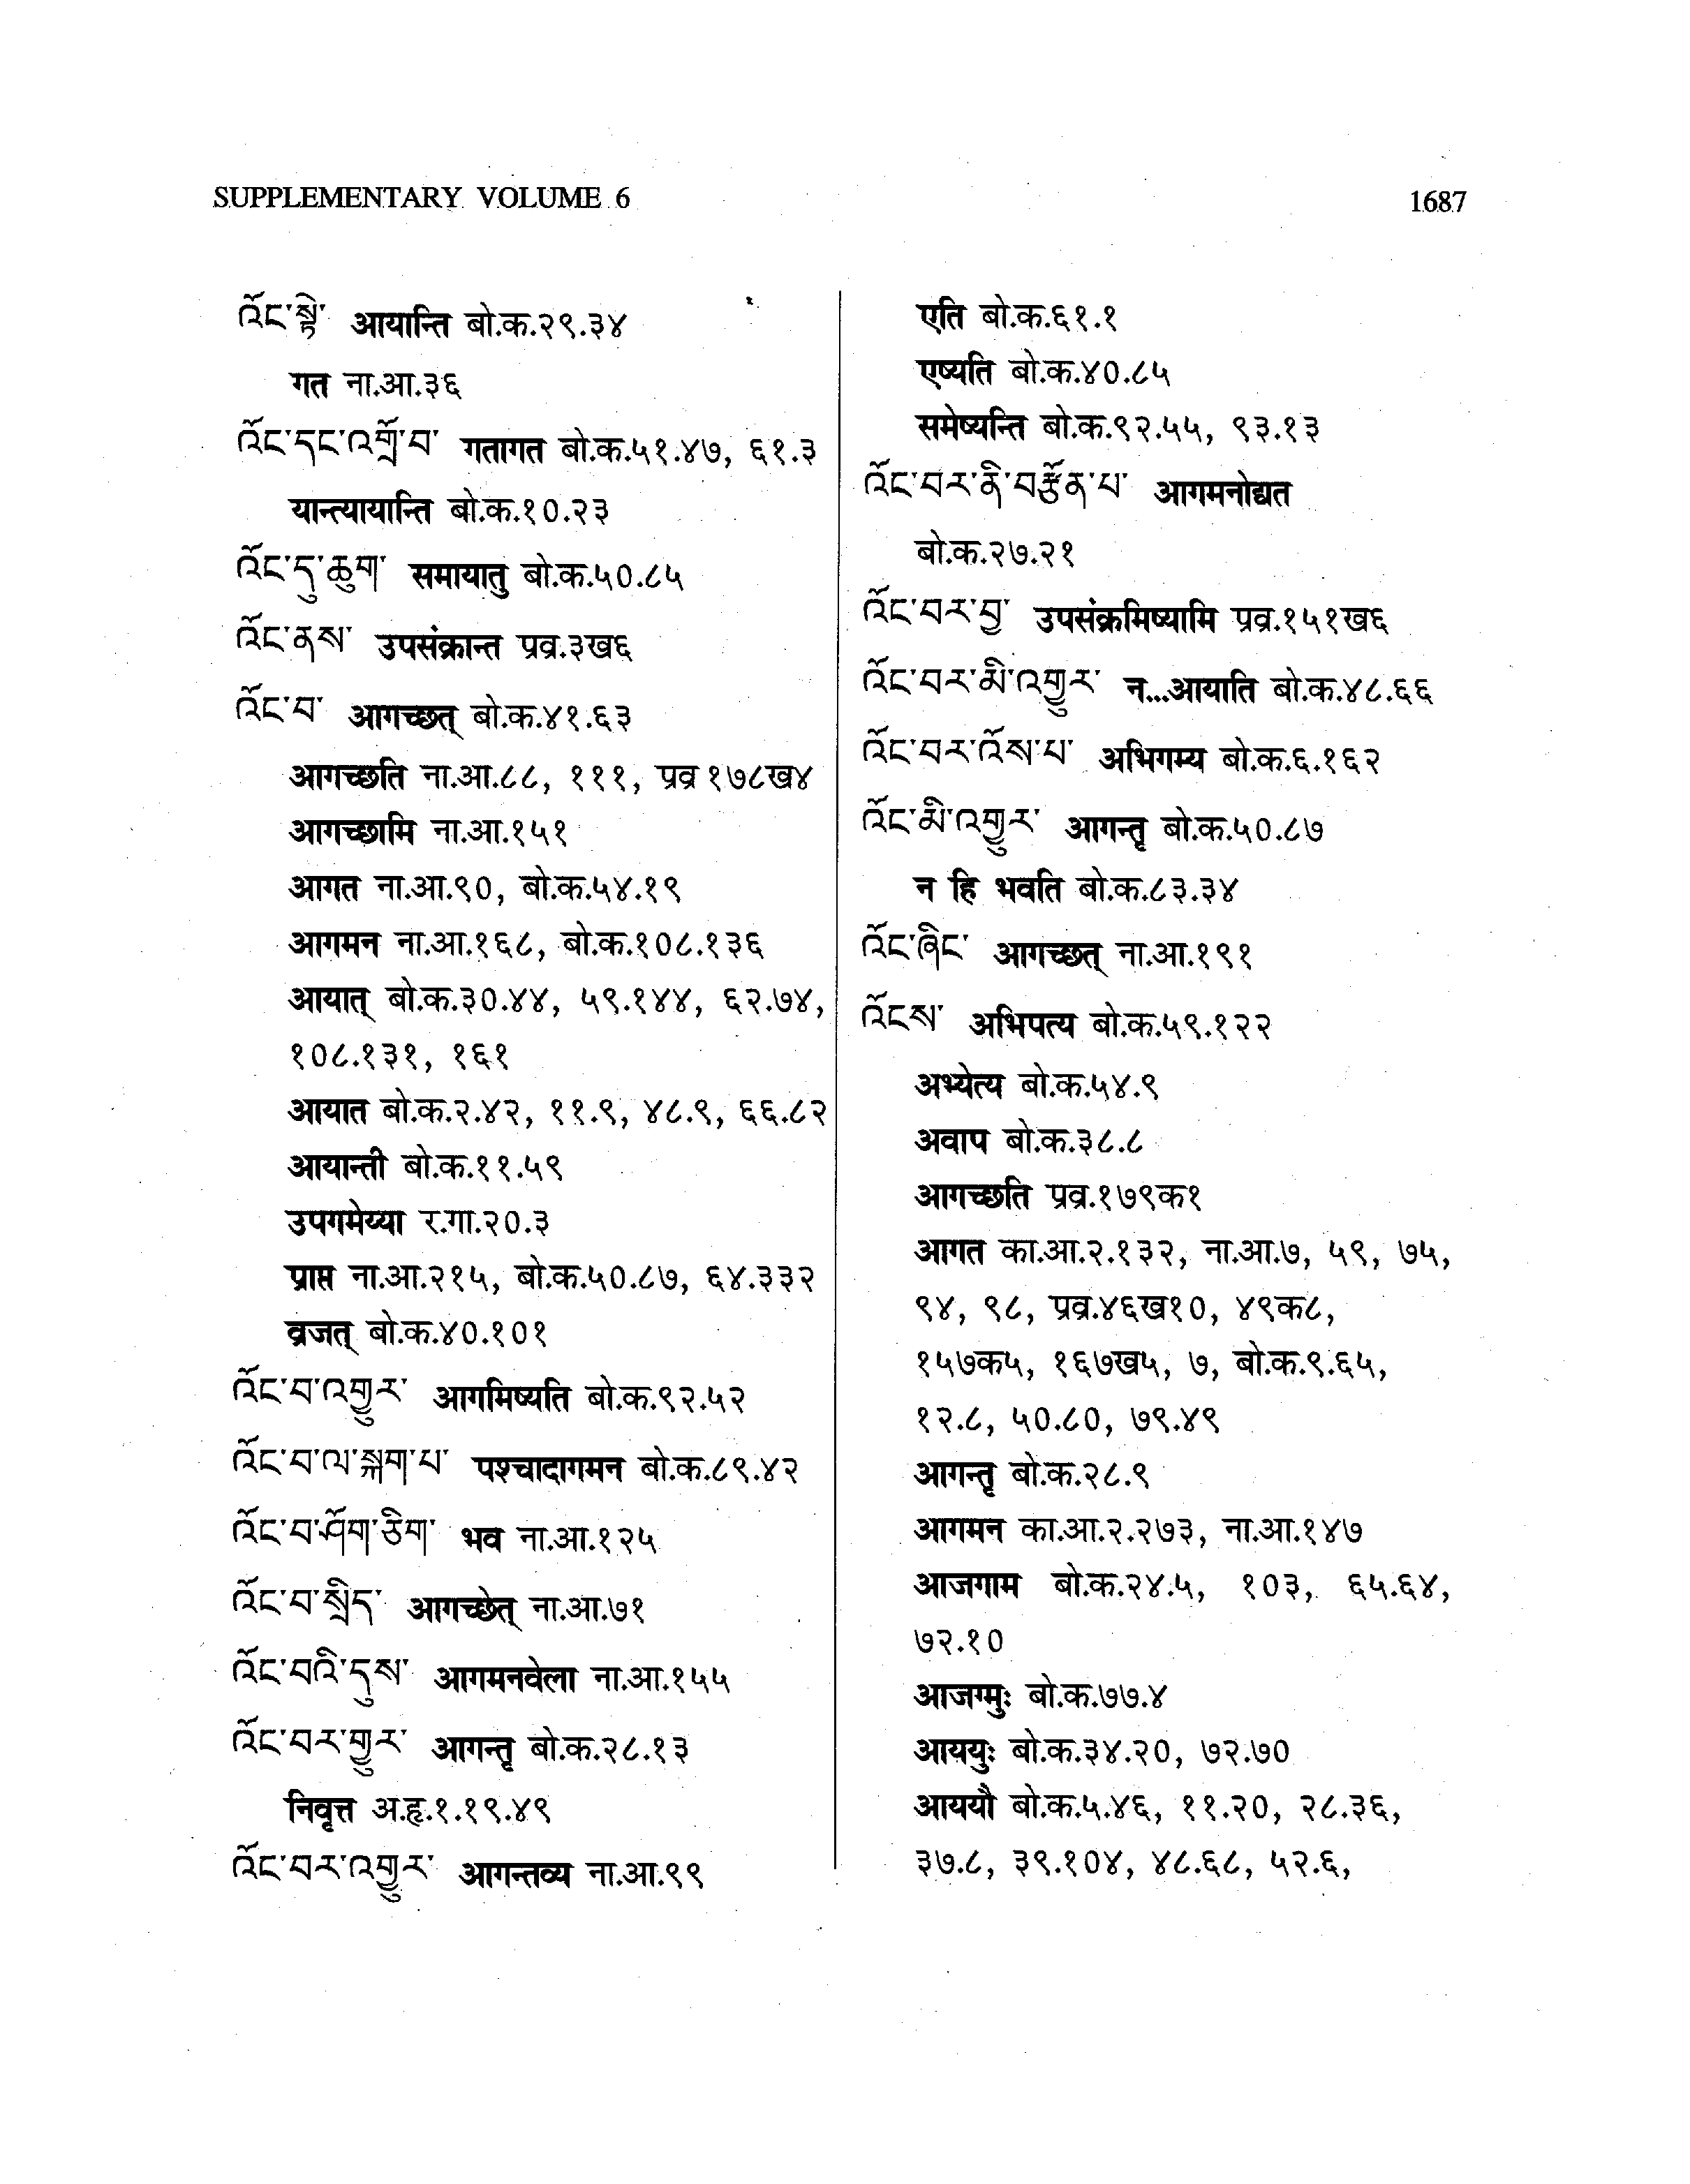 SUPPLEMENTARY VOLUME 6
1687
འོང་སྟེ་ आयान्ति बो.क.२९.३४
गत ना.आ.३६
འོང་དང་འགྲོ་བ་ गतागत बो.क.५१.४७, ६१.३
यान्त्यायान्ति बो.क.१०.२३
འོང་དུ་ཆུག་ समायातु बो.क.५०.८५
འོང་ནས་ उपसंक्रान्त प्रव्र.३ख६
འོང་བ་ आगच्छत् बो.क.४१.६३
आगच्छति ना.आ.८८, १११, प्रव्र १७८ख४
आगच्छामि ना.आ.१५१
आगत ना.आ.९०, बो.क.५४.१९
आगमन ना.आ.१६८, बो.क.१०८.१३६
आयात् बो.क.३०.४४, ५९.१४४, ६२.७४,
१०८.१३१, १६१
आयात बो.क.२.४२, ११.९, ४८.९, ६६.८२
आयान्ती बो.क.११.५९
उपगमेय्या र.गा.२०.३
प्राप्त ना.आ.२१५, बो.क.५०.८७, ६४.३३२
व्रजत् बो.क.४०.१०१
འོང་བ་འགྱུར་ आगमिष्यति बो.क.९२.५२
འོང་བ་ལ་སྐག་པ་ पश्चादागमन बो.क.८९.४२
འོང་བ་ཤོག་ཅིག་ भव ना.आ.१२५
འོང་བ་སྲིད་ आगच्छेत् ना.आ.७१
འོང་བའི་དུས་ आगमनवेला ना.आ.१५५
འོང་བར་གྱུར་ आगन्तृ बो.क.२८.१३
निवृत्त अ.हृ.१.१९.४९
འོང་བར་འགྱུར་ आगन्तव्य ना.आ.९९
एति बो.क.६१.१
एष्यति बो.क.४०.८५
समेष्यन्ति बो.क.९२.५५, ९३.१३
འོང་བར་ནི་བརྩོན་པ་ आगमनोद्यत
बो.क.२७.२१
འོང་བར་བྱ་ उपसंक्रमिष्यामि प्रव्र.१५१ख६
འོང་བར་མི་འགྱུར་ न...आयाति बो.क.४८.६६
འོང་བར་འོས་པ་ अभिगम्य बो.क.६.१६२
འོང་མི་འགྱུར་ आगन्तृ बो.क.५०.८७
न हि भवति बो.क.८३.३४
འོང་ཞིང་ आगच्छत् ना.आ.१९१
འོངས་ अभिपत्य बो.क.५९.१२२
अभ्येत्य बो.क.५४.९
अवाप बो.क.३८.८
आगच्छति प्रव्र.१७९क१
आगत का.आ.२.१३२, ना.आ.७, ५९, ७५,
९४, ९८, प्रव्र.४६ख१०, ४९क८,
१५७क५, १६७ख५, ७, बो.क.९.६५,
१२.८, ५०.८०, ७९.४९
आगन्तृ बो.क.२८.९
आगमन का.आ.२.२७३, ना.आ.१४७
आजगाम बो.क.२४.५, १०३, ६५.६४,
७२.१०
आजग्मुः बो.क.७७.४
आययुः बो.क.३४.२०, ७२.७०
आययौ बो.क.५.४६, ११.२०, २८.३६,
३७.८, ३९.१०४, ४८.६८, ५२.६,